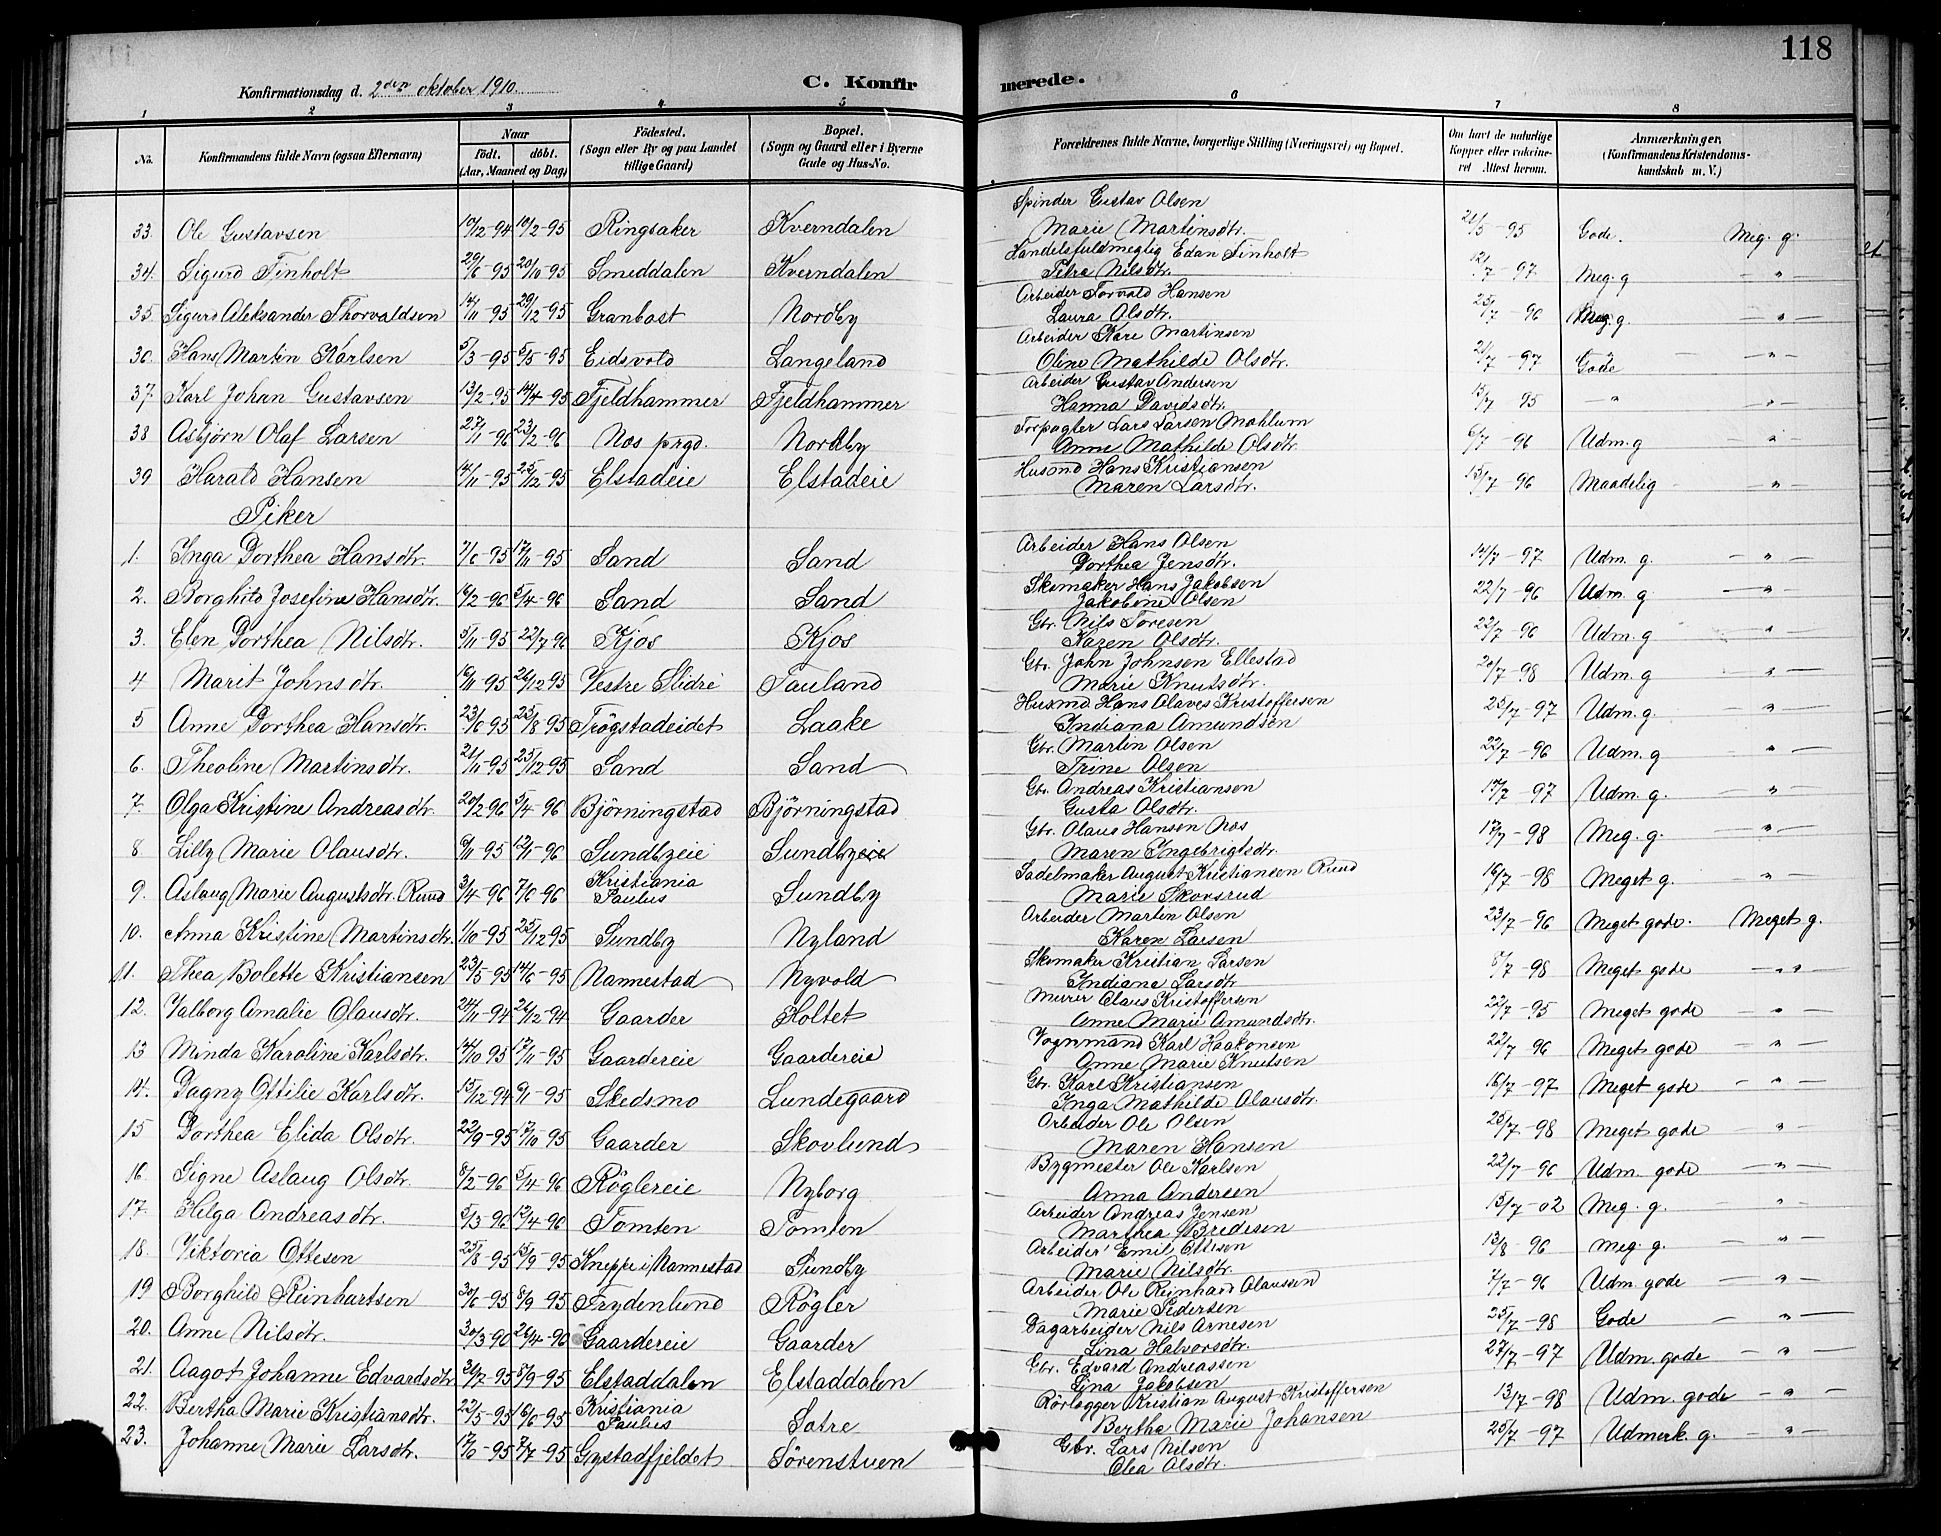 118
Konfirmationsdag d. 2den oktober 1910.
C. Konfirmerede.
1 2 3 4 5 6 7 8
No.
Konfirmandens fulde Navn (ogsaa Efternavn)
Naar
født. døbt.
(Aar, Maaned og Dag)
Födested.
(Sogn eller By og paa Landet tillige Gaard)
Bopæl.
(Sogn og Gaard eller i Byerne Gade og Hus-No.
Forældrenes fulde Navne, borgerlige Stilling (Næringsvei) og Bopæl.
Om havt de naturlige Kopper eller vakcineret Attest herom.
Anmærkninger,
(Konfirmandens Kristendomskundskab m. V.)
33. Ole Gustavsen 10/12-94 10/2-95 Ringsaker Kverndalen Spinder Gustav Olsen Marie Martinsdtr. 21/5-95 Gode. Meg. g.
34. Sigurd Finholt 29/6-95 20/10-95 Smeddalen Kverndalen Handelsfuldmegtig Edan Finholt Petra Nilsdtr. 12/7-97 Meg. g -"-
35 Sigurd Aleksander Thorvaldsen 14/11-95 29/12-95 Granbost Nordby Arbeider Torvald Hansen Laura Olsdtr. 25/7-96 Meg. g. -"-
36. Hans Martin Karlsen 5/3-95 5/5-95 Eidsvold Langeland Arbeider Kare Martinsen Oline Mathilde Olsdtr. 21/7-97 Gode -"-
37. Karl Johan Gustavsen 13/2-95 14/4-95 Fjeldhammer Fjeldhammer Arbeider Gustav Andersen Hanna Davidsdtr. 15/7-95 -"- -"-
38 Asbjørn Olaf Larsen 27/11-96 23/2-96 Nos prgd. Nordby Forpagter Lars Larsen Mohlum Anne Mathilde Olsdtr. 6/7-96 Udm. g -"-
39 Harald Hansen 14/11-95 25/12-95 Elstadeie Elstadeie Husmd Hans Kristiansen Maren Larsdtr. 15/7-96 Maadelig -"-
Piker
1. Inga Dorthea Hansdtr. 7/6-95 17/11-95 Sand Sand Arbeider Hans Olsen Dorthea Jensdtr. 14/7-97 Udm. g. -"-
2. Borghild Josefine Hansdtr. 16/2-96 5/4-96 Sand Sand Skomaker Hans Jakobsen Jakobine Olsen 22/7-96 Udm. g -"-
3. Elen Dorthea Nilsdtr. 5/11-95 22/7 96 Kjos Kjos Gbr. Nils Toresen Karen Olsdtr. 22/7-96 Udm. g -"-
4 Marit Johnsdtr. 10/11-95 26/12 95 Vestre Slidre Tauland Gbr. John Johnsen Ellestad Marie Knutsdtr. 20/7-98 Udm. g -"-
5 Anne Dorthea Hansdtr. 23/6 95 25/8 95 Trögstadeidet Laake Husmd. Hans Olaves Kristoffersen Indiana Amundsen 25/7-97 Udm. g. -"-
6. Theoline Martinsdtr. 21/11-95 25/12-95 Sand Sand Gbr. Martin Olsen Trine Olsen 22/7-96 Udm. g -"-
7. Olga Kristine Andreasdtr. 20/2-96 5/4-96 Björningstad Björningstad Gbr. Andreas Kristiansen Gusta Olsdtr. 17/7-97 Udm. g. -"-
8. Lilly Marie Olausdtr. 6/11-95 12/1-96 Sundbyeie Sundbyeie Gbr. Olaus Hansen Nos Maren Ingebrigtsdtr. 17/7-98 Meg. g. -"-
9. Aslaug Marie Augustsdtr. Ruud 3/4-96 7/6-96 Kristiania Paulus Sundby Sadelmaker August Kristiansen Ruud Marie Skovsrud 16/7-98 Meget g. -"-
10. Anna Kristine Martinsdtr. 1/10-95 25/12 95 Sundby Nyland Arbeider Martin Olsen Karen Larsen 23/7-96 Meget gode. Meget g.
11. Thea Bolette Kristiansen 23/5-95 14/6-95 Nannestad Nyvold Skomaker Kristian Larsen Indiane Larsdtr. 8/7-98 Meget gode -"-
12. Valborg Amalie Olausdtr. 24/11-94 26/12-94 Gaarder Holtet Murer Olaus Kristoffersen Anne Marie Amundsdtr. 22/7-95 Meget gode -"-
13 Minda Karoline Karlsdtr. 14/10 95 17/11-95 Gaardereie Gaardereie Vognmand Karl Haakonsen Anne Marie Knutsen 22/7 96 Meget gode -"-
14. Dagny Ottilie Karlsdtr. 15/12-94 6/1-95 Skedsmo Lundegaard Gbr. Karl Kristiansen Inga Mathilde Olausdtr. 16/7-97 Meget gode -"-
15 Dorthea Elida Olsdtr. 22/9-95 17/10-95 Gaarder Skovlund Arbeider Ole Olsen Maren Hansen 25/7-98 Meget gode -"-
16. Signe Aslaug Olsdtr. 8/2-96 5/4-96 Röglereie Nyborg Bygmester Ole Karlsen Anna Andersen 22/7-96 Udm. gode -"-
17. Helga Andreasdtr. 5/3 96 12/4-96 Tomten Tomten Arbeider Andreas Jensen Marthea Bredesen 15/7-02 Meg. g. -"-
18. Viktoria Ottesen 25/8-95 15/9-95 Kneppe i Nannestad Sundby Arbeider Emil Ottesen Marie Nilsdtr. 13/8-96 Meg. g. -"-
19 Borghild Reinhartsen 30/6-95 8/9-95 Frydenlund Rögler Arbeider Ole Reinhard Olaussen Marie Pedersen 7/7-96 Udm. gode -"-
20. Anne Nilsdtr. 30/3-96 26/4-96 Gaardereie Gaarder Dagarbeider Nils Arnesen Lina Halvorsdtr. 25/7-98 Gode -"-
21. Aagot Johanne Edvardsdtr. 31/7-95 8/9-95 Elstaddalen Elstaddalen Gbr. Edvard Andreassen Lina Jakobsen 27/7-97 Udm. gode -"-
22. Bertha Marie Kristiansdtr. 22/5-95 16/6-95 Kristiania Paulus Satre Rörlægger Kristian August Kristoffersen Bertha Marie Johansen 13/7-98 Udm. gode -"-
23. Johanne Marie Larsdtr. 17/6-95 7/7-95 Gystadfjeldet Sörenstuen Gbr. Lars Nilsen Olea Olsdtr. 25/7-97 Udmerk. g. -"-